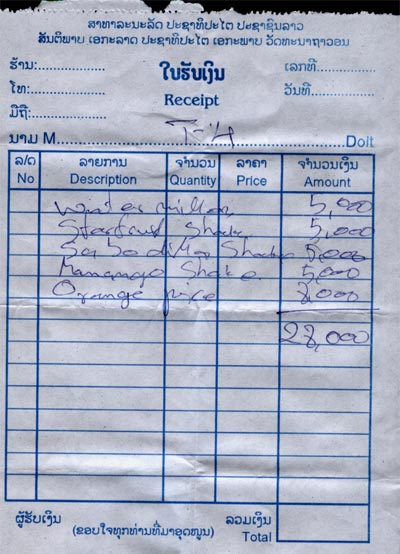 ສາທາລະນະລັດ ປະຊາທິປະໄຕ ປະຊາຊົນລາວ
ສັນຕິພາບ ເອກະລາດ ປະຊາທິປະໄຕ ເອກະພາບ ວັດທະນາຖາວອນ
ຮ້ານ:................ ໃບຮັບເງິນ ເລກທີ................
ໂທ:................ Receipt ວັນທີ................
ມືຖື:................
ນາມ M................ T-4 ................Doit
ລ/ດ ລາຍການ ຈຳນວນ ລາຄາ ຈຳນວນເງິນ
No Description Quantity Price Amount
5,000
Starfruit Shake 5,000
Shake 5,000
Shake 5,000
Orange 8,000
28,000
ຜູ້ຮັບເງິນ ລວມເງິນ
(ຂອບໃຈທຸກທ່ານທີ່ມາອຸດໜູນ) Total